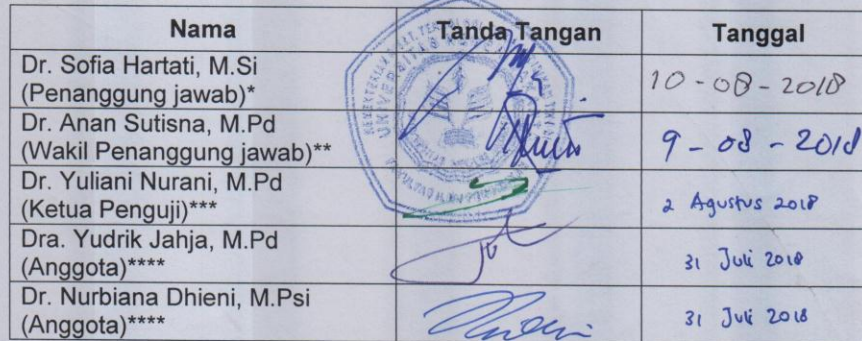 Nama Tanda Tangan Tanggal
Dr. Sofia Hartati, M.Si
(Penanggung jawab)* 10-08-2018
Dr. Anan Sutisna, M.Pd
(Wakil Penanggung jawab)** 9-08-2018
Dr. Yuliani Nurani, M.Pd
(Ketua Penguji)*** 2 Agustus 2018
Dra. Yudrik Jahja, M.Pd
(Anggota)**** 31 Juli 2018
Dr. Nurbiana Dhieni, M.Psi
(Anggota)**** 31 Juli 2018